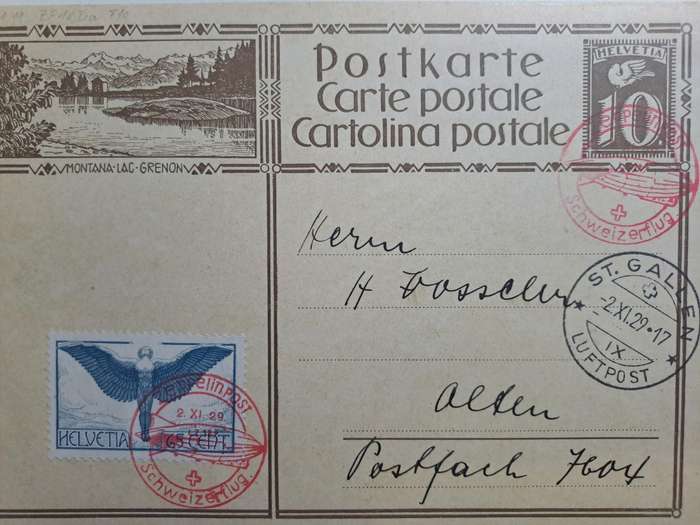 MONTANA-LAC-GRENON
Postkarte
Carte postale
Cartolina postale
HELVETIA
10
Zeppelinpost
Schweizerflug
Herrn
H
Olten
Postfach
ST. GALLEN
-2.XI.29•17
IX
LUFTPOST
HELVETIA
65 CENT.
Zeppelinpost
2. XI. 29
Schweizerflug